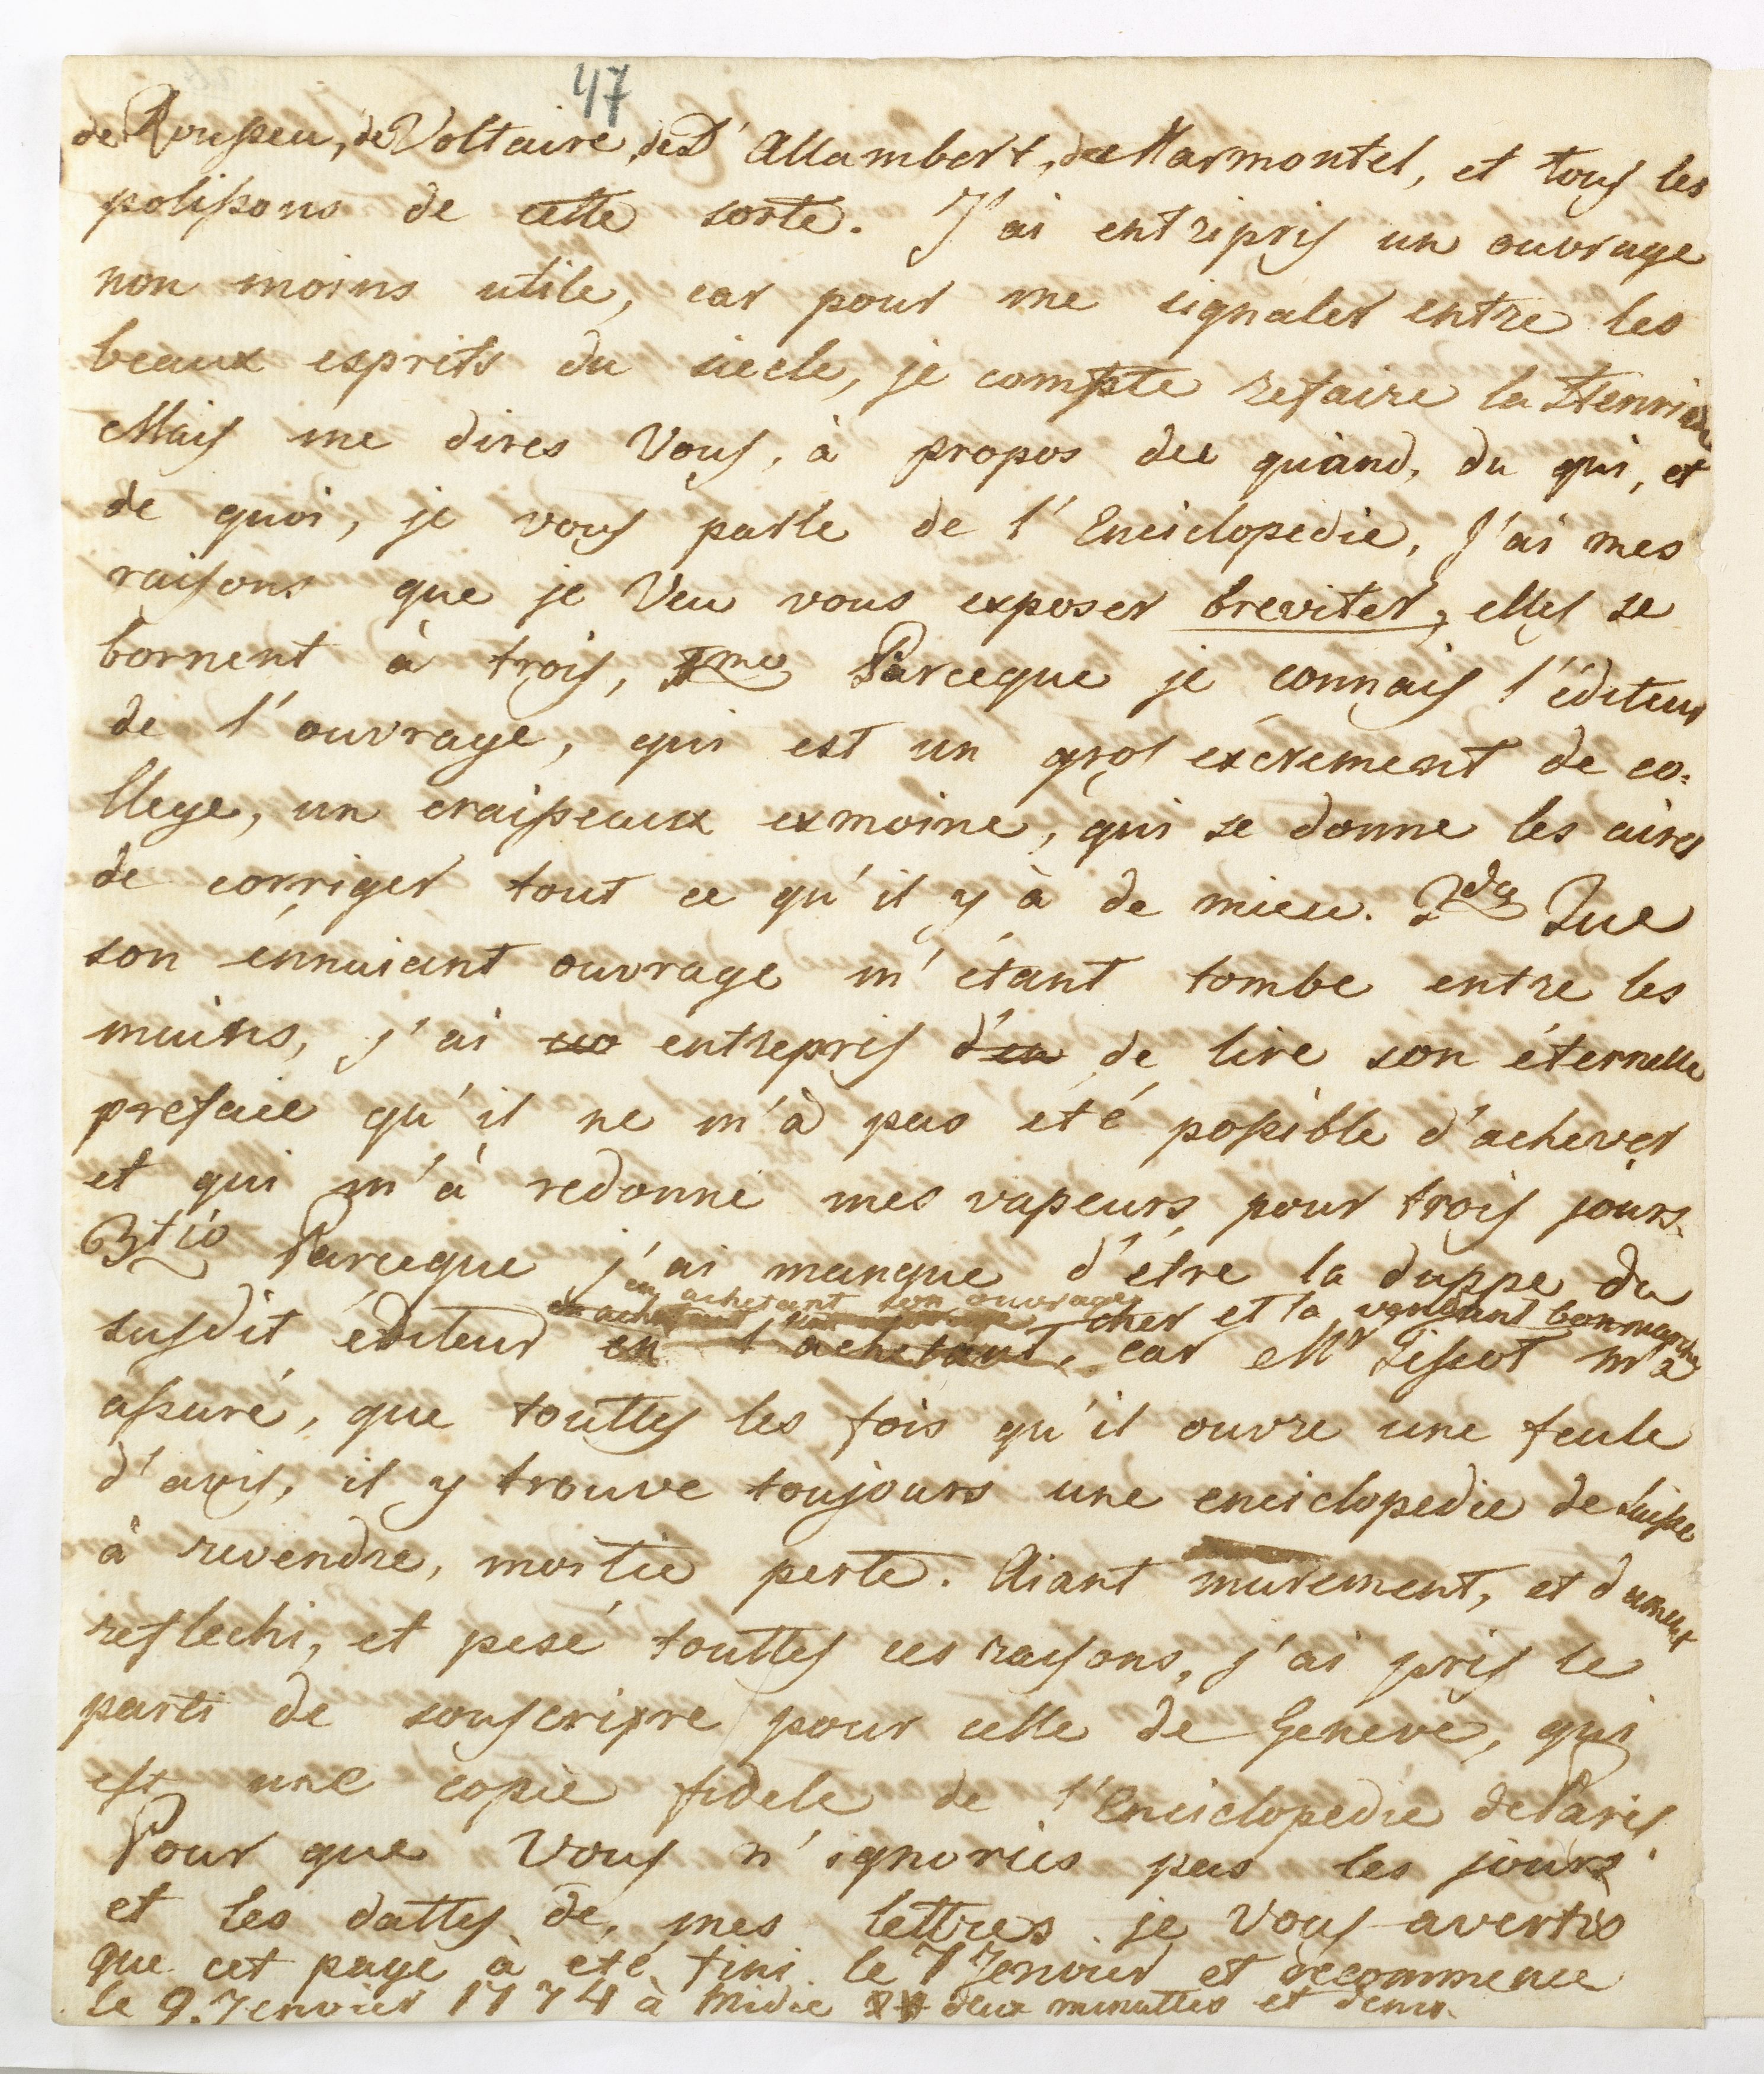 47
de Rousseu, de Voltaire, de D'Allambert, de Marmontel, et tous les
polissons de cette sorte. J'ai entripris un ouvrage
non moins utile, car pour me signaler entre les
beaux esprits du siecle, je compte refaire la Henriade
Mais me dires Vous, à propos du quand, du qui, et
de quoi, je vous parle de l'Enciclopedie, J'ai mes
raisons que je Veu vous exposer breviter, elles se
bornent à trois, Parceque je connais l'éditeur
de l'ouvrage, qui est un gros excrement de co=
llege, un craisseaux exmoine, qui se donne les aires
de corriger tout ce qu'il y à de mieu. 2do Que
son ennuiant ouvrage m'étant tombe entre les
mains, j'ai entrepris de lire son éternelle
preface qu'il ne m'à pas eté possible d'achever
et qui m'à redonné mes vapeurs pour trois jours.
3tio Parceque j'ai manque d'étre la duppe du
en achetant son ouvrage cher et la vendant bonmarché
susdit éditeur en l'achetant, car Mr Tissot m'à
assuré, que touttes les fois qu'il ouvre une feule
d'avis, il y trouve toujours une enciclopedie de Suisse
à revendre, moitie perte. Aiant murement, et dument
reflechi, et pesé touttes ces raisons, j'ai pris le
parti de souscripre pour celle de Geneve, qui
est une copie fidele de l'Enciclopedie de Paris
Pour que Vous n'ignories pas les jours
et les dattes de, mes lettres je Vous avertis
que cet page à eté fini le 7 Jenvier et recommence
le 9. Jenvier 1774 à Midie deux minuttes et demi.